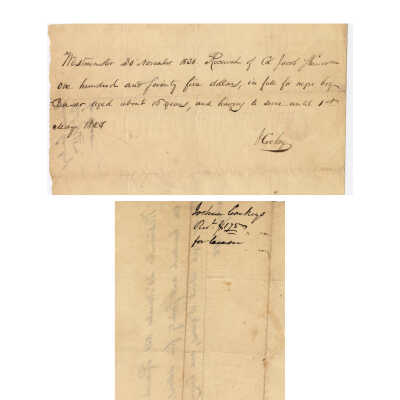 Westminster 20 November 1830. Received of Col Jacob
one hundred and seventy five dollars, in full for negro boy
Ceasar aged about 15 years, and having to serve until 1st
May 1845
J Cockey
Joshua Cockeys
Rect $175
for Ceasar